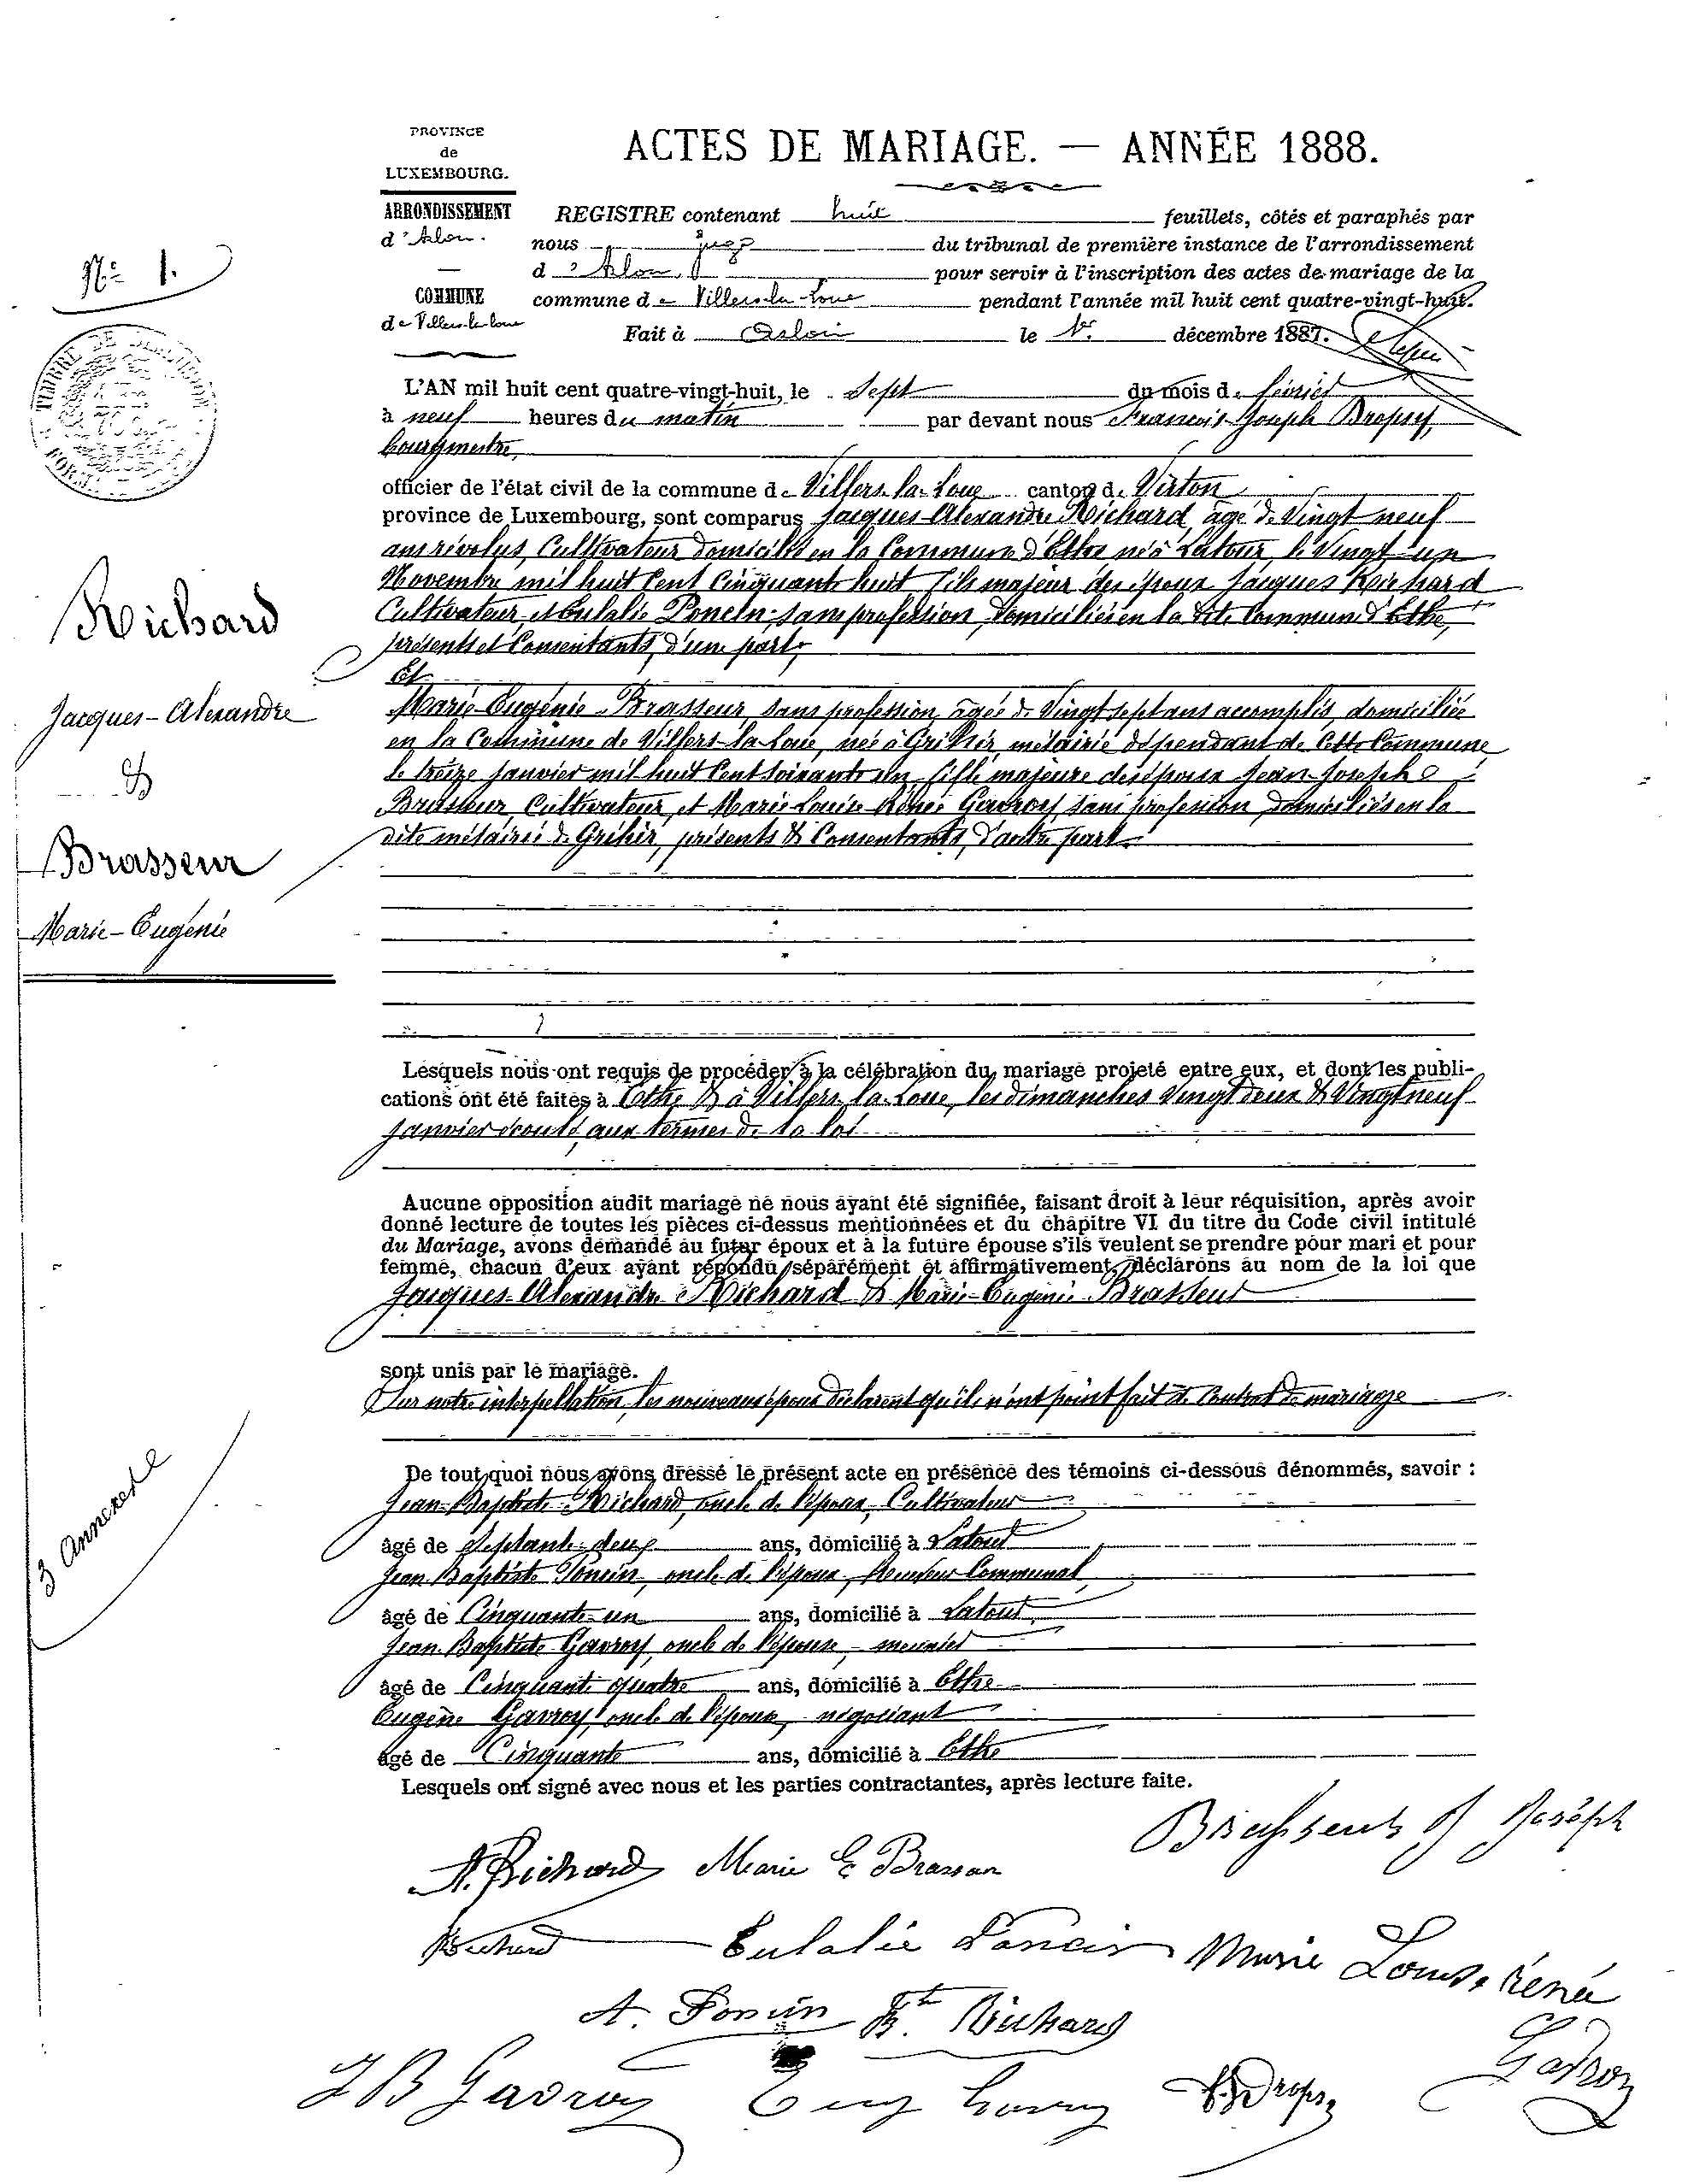 PROVINCE
de
LUXEMBOURG.
ARRONDISSEMENT
d'Arlon.
COMMUNE
de Villers-la-Loue
ACTES DE MARIAGE. — ANNÉE 1888.
REGISTRE contenant huit feuillets, côtés et paraphés par
nous juge du tribunal de première instance de l'arrondissement
d'Arlon, pour servir à l'inscription des actes de mariage de la
commune de Villers-la-Loue pendant l'année mil huit cent quatre-vingt-huit.
Fait à Arlon le 1er décembre 1887.
N° 1.
TIMBRE DE DIMENSION
Richard
Jacques-Alexandre
&
Brasseur
Marie-Eugénie
L'AN mil huit cent quatre-vingt-huit, le sept du mois de février
à neuf heures du matin par devant nous François-Joseph Dropsy,
bourgmestre,
officier de l'état civil de la commune de Villers-la-Loue canton de Virton
province de Luxembourg, sont comparus Jacques-Alexandre Richard, âgé de Vingt neuf
ans révolus, Cultivateur domicilié en la Commune d'Ethe né à Latour, le Vingt un
Novembre mil huit Cent Cinquante huit fils majeur des époux Jacques Richard
Cultivateur, et Eulalie Poncin, sans profession, domiciliés en la dite Commune d'Ethe,
présents et Consentants, d'une part,
Et
Marie-Eugénie Brasseur sans profession, âgée de Vingt sept ans accomplis, domiciliée
en la Commune de Villers-la-Loue, née à Gribier, métairie dépendant de Cette Commune
le treize Janvier mil huit Cent soixante un, fille majeure des époux Jean-Joseph
Brasseur, Cultivateur, et Marie Louise Rénée Gavroy, sans profession, domiciliés en la
dite métairie de Gribier, présents & Consentants, d'autre part.
Lesquels nous ont requis de procéder à la célébration du mariage projeté entre eux, et dont les publi-
cations ont été faites à Ethe & à Villers-la-Loue, les dimanches Vingt deux & Vingt neuf
Janvier écoulé, aux termes de la loi
Aucune opposition audit mariage ne nous ayant été signifiée, faisant droit à leur réquisition, après avoir
donné lecture de toutes les pièces ci-dessus mentionnées et du chapitre VI du titre du Code civil intitulé
du Mariage, avons demandé au futur époux et à la future épouse s'ils veulent se prendre pour mari et pour
femme, chacun d'eux ayant répondu séparément et affirmativement, déclarons au nom de la loi que
Jacques-Alexandre Richard & Marie-Eugénie Brasseur
sont unis par le mariage.
Sur notre interpellation, les nouveaux époux déclarent qu'ils n'ont point fait de Contrat de mariage
3 annexes
De tout quoi nous avons dressé le présent acte en présence des témoins ci-dessous dénommés, savoir :
Jean-Baptiste Richard, oncle de l'époux, Cultivateur
âgé de Septante-deux ans, domicilié à Latour
Jean-Baptiste Poncin, oncle de l'époux, Receveur Communal,
âgé de Cinquante-un ans, domicilié à Latour
Jean-Baptiste Gavroy, oncle de l'épouse, meunier
âgé de Cinquante quatre ans, domicilié à Ethe
Eugène Gavroy, oncle de l'épouse, négociant
âgé de Cinquante ans, domicilié à Ethe
Lesquels ont signé avec nous et les parties contractantes, après lecture faite.
Brasseur J Joseph
A. Richard Marie E Brasseur
Richard Eulalie Poncin Marie Louise rénée
Gavroy
A. Poncin Bte Richard
J B Gavroy Eug Gavroy Dropsy